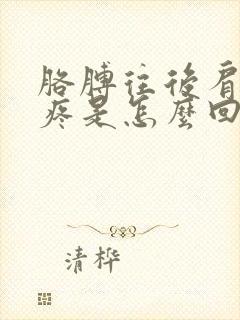 胳膊往後肩
疼是怎麼回
清樺